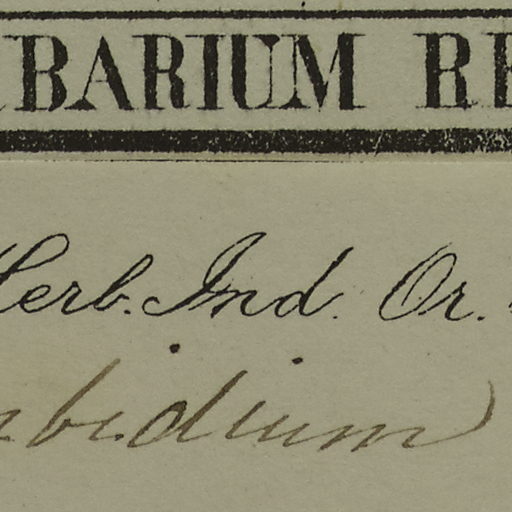 BARIUM RE
Herb. Ind. Or.
mbidium